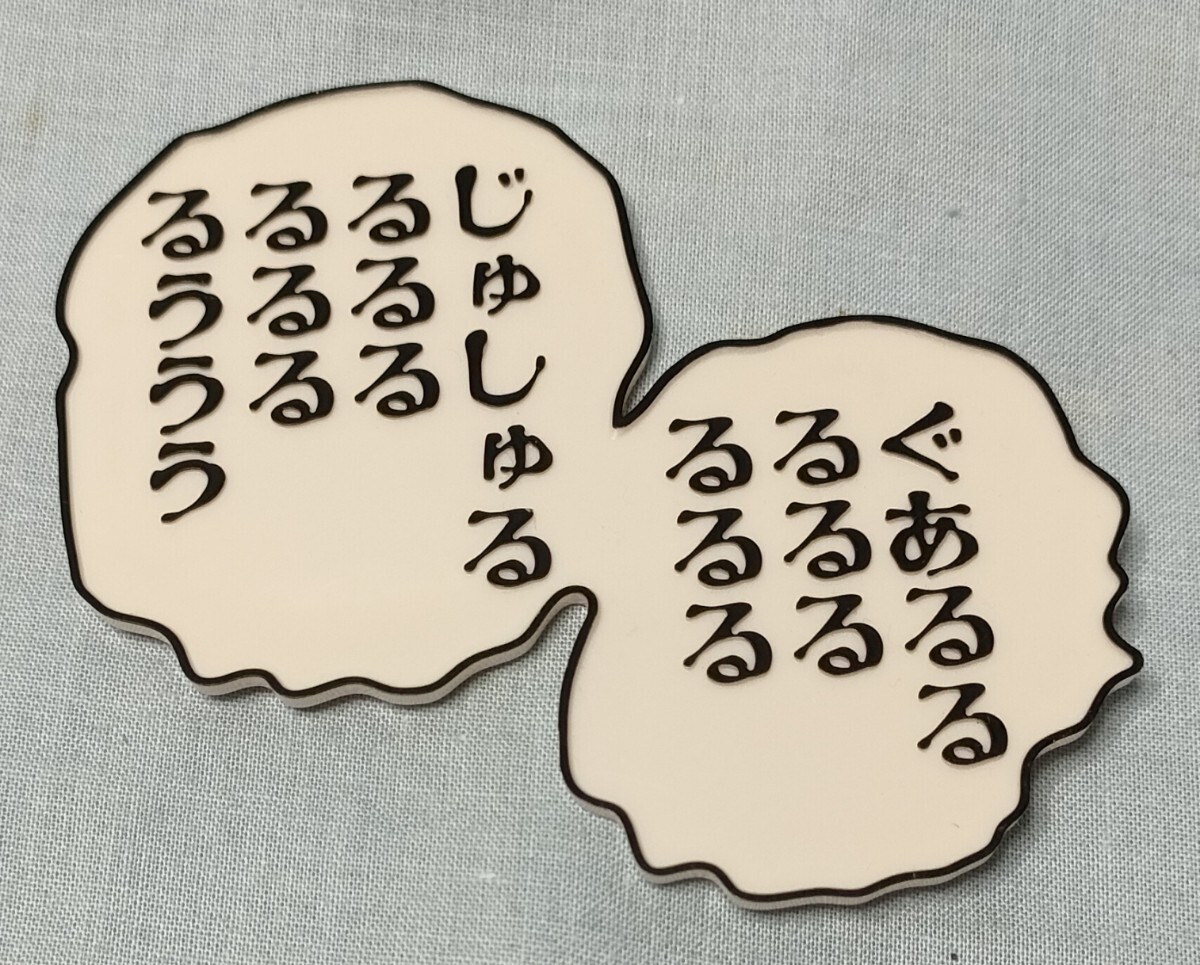 ぐあるる
るるる
るるる
じゅしゅる
るるる
るるる
るううう